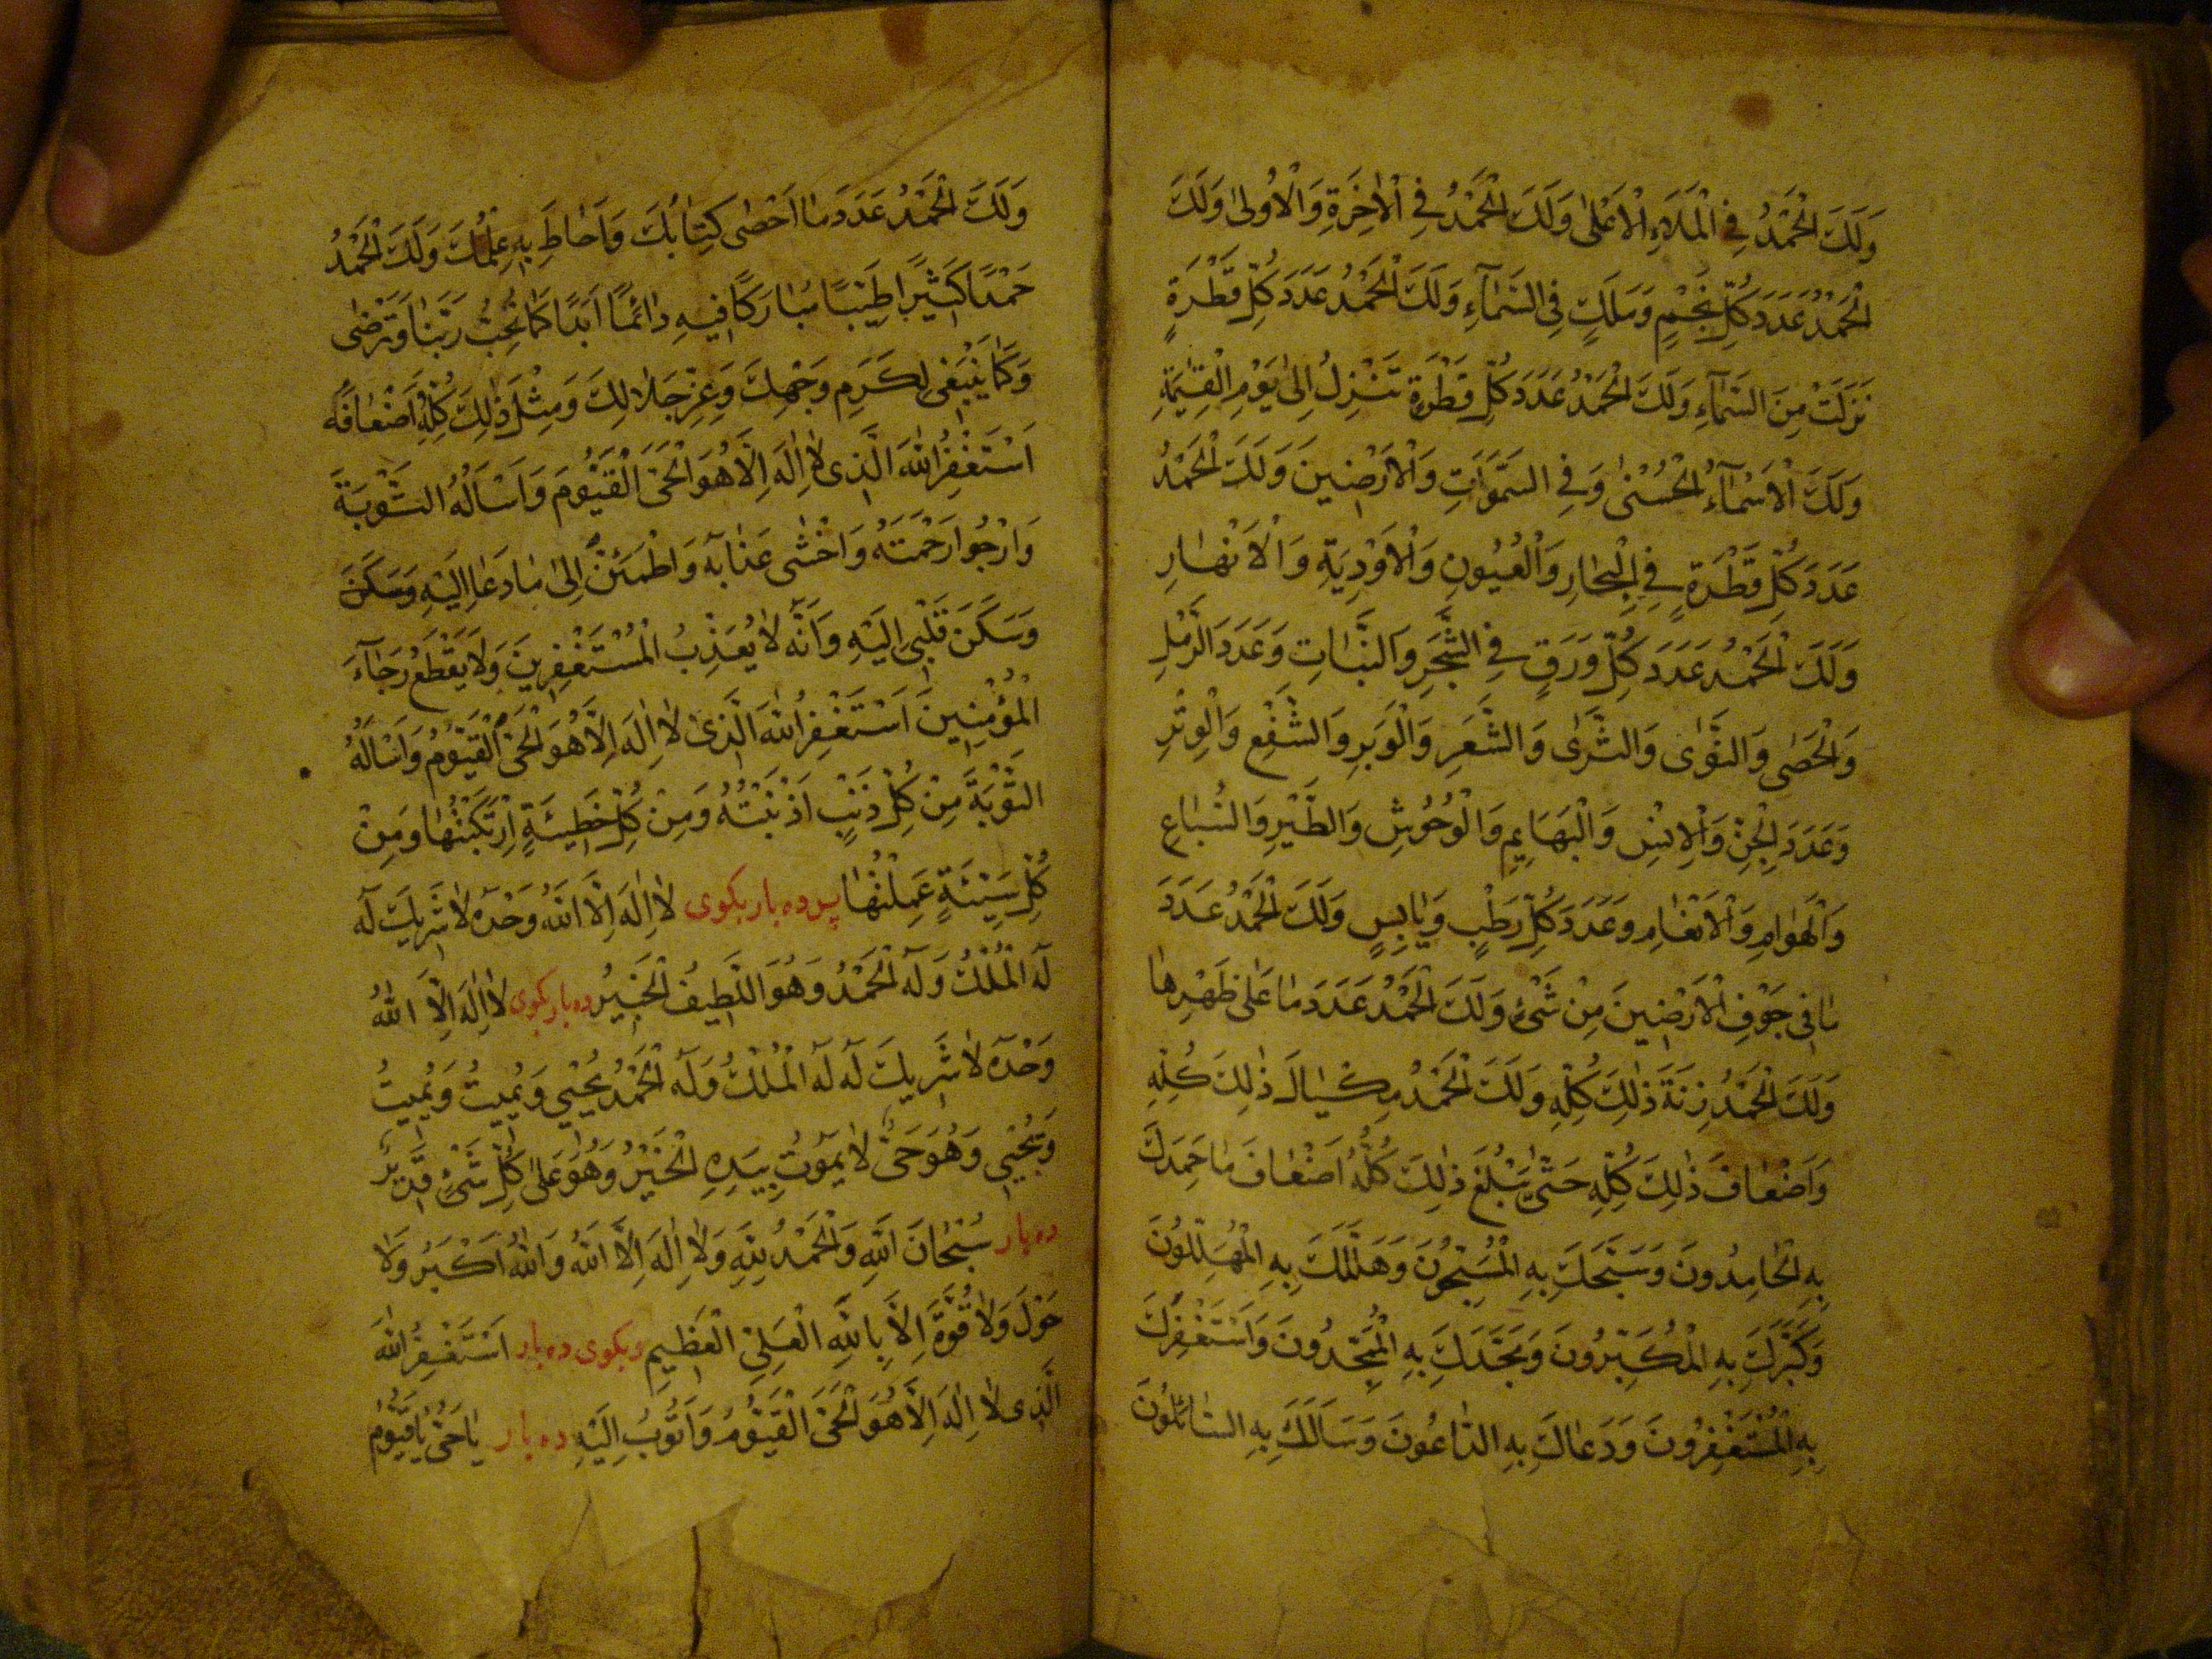 وَلَكَ الْحَمْدُ فِي الْمَلَاءِ الْاَعْلٰى وَلَكَ الْحَمْدُ فِي الْاٰخِرَةِ وَالْاُولٰى وَلَكَ
الْحَمْدُ عَدَدَ كُلِّ نَجْمٍ وَمَلَكٍ فِي السَّمَآءِ وَلَكَ الْحَمْدُ عَدَدَ كُلِّ قَطْرَةٍ
نَزَلَتْ مِنَ السَّمَآءِ وَلَكَ الْحَمْدُ عَدَدَ كُلِّ قَطْرَةٍ تَنْزِلُ اِلٰى يَوْمِ الْقِيٰمَةِ
وَلَكَ الْاَسْمَآءُ الْحُسْنٰى وَفِي السَّمٰوَاتِ وَالْاَرَضِينَ وَلَكَ الْحَمْدُ
عَدَدَ كُلِّ قَطْرَةٍ فِي الْبِحَارِ وَالْعُيُونِ وَالْاَوْدِيَةِ وَالْاَنْهَارِ
وَلَكَ الْحَمْدُ عَدَدَ كُلِّ وَرَقٍ فِي الشَّجَرِ وَالنَّبَاتِ وَعَدَدَ الرَّمْلِ
وَالْحَصٰى وَالنَّوٰى وَالثَّرٰى وَالشَّعَرِ وَالْوَبَرِ وَالشَّفْعِ وَالْوِتْرِ
وَعَدَدَ الْجِنِّ وَالْاِنْسِ وَالْبَهَايِمِ وَالْوُحُوشِ وَالطَّيْرِ وَالسِّبَاعِ
وَالْهَوَامِ وَالْاَنْعَامِ وَعَدَدَ كُلِّ رَطْبٍ وَيَابِسٍ وَلَكَ الْحَمْدُ عَدَدَ
مَا فِي جَوْفِ الْاَرَضِينَ مِنْ شَيْءٍ وَلَكَ الْحَمْدُ عَدَدَ مَا عَلٰى ظَهْرِهَا
وَلَكَ الْحَمْدُ زِنَةَ ذٰلِكَ كُلِّهِ وَلَكَ الْحَمْدُ مِكْيَالَ ذٰلِكَ كُلِّهِ
وَاَضْعَافَ ذٰلِكَ كُلِّهِ حَتّٰى يَبْلُغَ ذٰلِكَ كُلُّهُ اَضْعَافَ مَا حَمِدَكَ
بِهِ الْحَامِدُونَ وَسَبَّحَكَ بِهِ الْمُسَبِّحُونَ وَهَلَّلَكَ بِهِ الْمُهَلِّلُونَ
وَكَبَّرَكَ بِهِ الْمُكَبِّرُونَ وَمَجَّدَكَ بِهِ الْمُمَجِّدُونَ وَاسْتَغْفَرَكَ
بِهِ الْمُسْتَغْفِرُونَ وَدَعَاكَ بِهِ الدَّاعُونَ وَسَالَكَ بِهِ السَّائِلُونَ
وَلَكَ الْحَمْدُ عَدَدَ مَا اَحْصٰى كِتَابُكَ وَاَحَاطَ بِهِ عِلْمُكَ وَلَكَ الْحَمْدُ
حَمْدًا كَثِيرًا طَيِّبًا مُبَارَكًا فِيهِ دَائِمًا اَبَدًا كَمَا تُحِبُّ رَبَّنَا وَتَرْضٰى
وَكَمَا يَنْبَغِي لِكَرَمِ وَجْهِكَ وَعِزِّ جَلَالِكَ وَمِثْلَ ذٰلِكَ كُلِّهِ اَضْعَافَهُ
اَسْتَغْفِرُ اللّٰهَ الَّذِي لَا اِلٰهَ اِلَّا هُوَ الْحَيَّ الْقَيُّومَ وَاَسْاَلُهُ التَّوْبَةَ
وَاَرْجُوا رَحْمَتَهُ وَاَخْشٰى عَذَابَهُ وَاَطْمَئِنُّ اِلٰى مَا دَعَا اِلَيْهِ وَسَكَنَ
وَسَكَنَ قَلْبِي اِلَيْهِ وَاَنَّهُ لَا يُعَذِّبُ الْمُسْتَغْفِرِينَ وَلَا يَقْطَعُ رَجَآءَ
الْمُؤْمِنِينَ اَسْتَغْفِرُ اللّٰهَ الَّذِي لَا اِلٰهَ اِلَّا هُوَ الْحَيُّ الْقَيُّومُ وَاَسْاَلُهُ
التَّوْبَةَ مِنْ كُلِّ ذَنْبٍ اَذْنَبْتُهُ وَمِنْ كُلِّ خَطِيئَةٍ اِرْتَكَبْتُهَا وَمِنْ
كُلِّ سَيِّئَةٍ عَمِلْتُهَا پس ده بار بكوى لَا اِلٰهَ اِلَّا اللّٰهُ وَحْدَهُ لَا شَرِيكَ لَهُ
لَهُ الْمُلْكُ وَلَهُ الْحَمْدُ وَهُوَ اللَّطِيفُ الْخَبِيرُ ده بار بكوى لَا اِلٰهَ اِلَّا اللّٰهُ
وَحْدَهُ لَا شَرِيكَ لَهُ لَهُ الْمُلْكُ وَلَهُ الْحَمْدُ يُحْيِي وَيُمِيتُ وَيُمِيتُ
وَيُحْيِي وَهُوَ حَيٌّ لَا يَمُوتُ بِيَدِهِ الْخَيْرُ وَهُوَ عَلٰى كُلِّ شَيْءٍ قَدِيرٌ
ده بار سُبْحَانَ اللّٰهِ وَالْحَمْدُ لِلّٰهِ وَلَا اِلٰهَ اِلَّا اللّٰهُ وَاللّٰهُ اَكْبَرُ وَلَا
حَوْلَ وَلَا قُوَّةَ اِلَّا بِاللّٰهِ الْعَلِيِّ الْعَظِيمِ وبكوى ده بار اَسْتَغْفِرُ اللّٰهَ
الَّذِي لَا اِلٰهَ اِلَّا هُوَ الْحَيُّ الْقَيُّومُ وَاَتُوبُ اِلَيْهِ ده بار يَا حَيُّ يَا قَيُّومُ